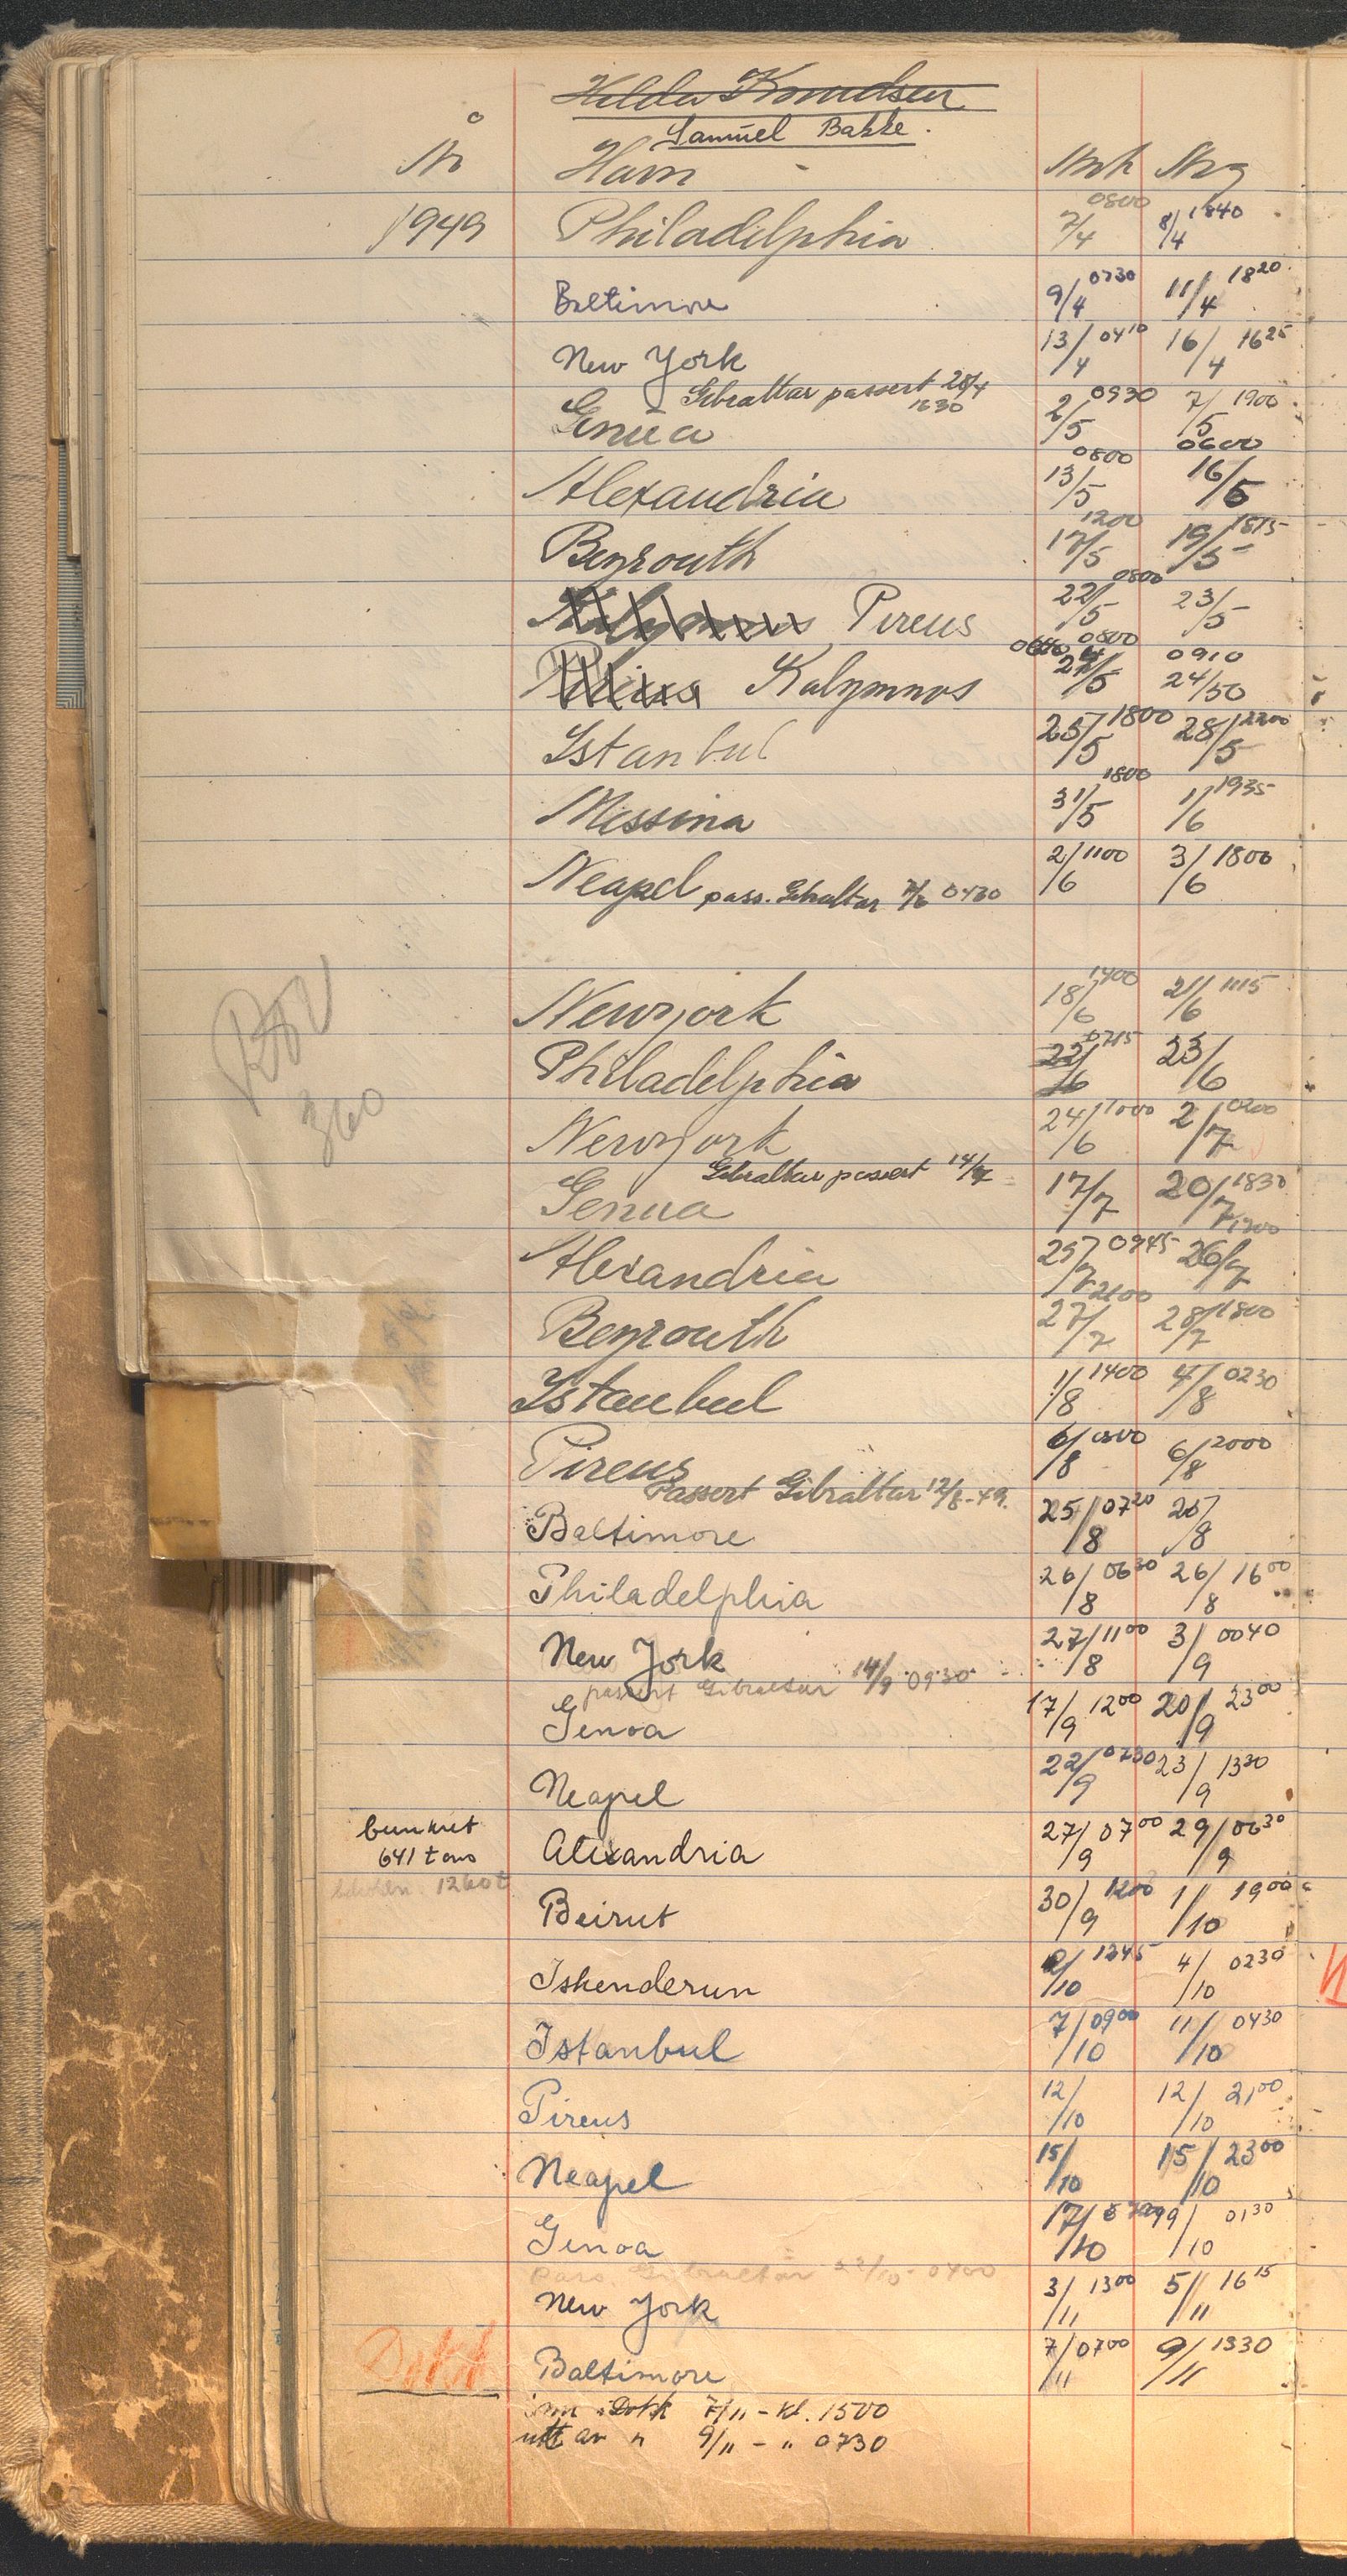 Hilda Knudsen
Samuel Bakke.
År Havn Ank Avg
1949 Philadelphia 7/4 0800 8/4 1840
Baltimore 9/4 0730 11/4 1820
New York 13/4 0410 16/4 1625
Gibraltar passert 28/4
1630
Genua 2/5 0930 7/5 1900
Alexandria 13/5 0800 16/5 0600
Beyrouth 17/5 1200 19/5 1815
Pireus 22/5 0800 23/5
Kalymnos 24/5 0800 24/5 0910
Istanbul 25/5 1800 28/5 2200
Messina 31/5 1800 1/6 1935
Neapel pass. Gibraltar 7/6 0430 2/6 1100 3/6 1800
Newyork 18/6 1400 21/6 1115
Philadelphia 22/6 0715 23/6
360
Newyork 24/6 1000 2/7 0200
Gibraltar passert 14/7
Genua 17/7 20/7 1830
Alexandria 25/7 0945 26/7 1200
Beyrouth 27/7 2100 28/7 1800
Istanbul 1/8 1400 4/8 0230
Pireus 6/8 0800 6/8 2000
Passert Gibraltar 12/8-49.
Baltimore 25/8 0720 25/8
Philadelphia 26/8 0630 26/8 1600
New York 27/8 1100 3/9 0040
passert Gibraltar 14/9 0930
Genoa 17/9 1200 20/9 2300
Neapel 22/9 0730 23/9 1330
bunkret
641 tons
Alexandria 27/9 0700 29/9 0630
1260t
Beirut 30/9 1200 1/10 1900
Iskenderun 2/10 1245 4/10 0230
Istanbul 7/10 0900 11/10 0430
Pireus 12/10 12/10 2100
Neapel 15/10 15/10 2300
Genoa 17/10 19/10 0130
Pass. Gibraltar 22/10 - 0400
New York 3/11 1300 5/11 1615
Dokk Baltimore 7/11 0700 9/11 1330
inn i Dokk 7/11 - kl. 1500
utt av " 9/11 - " 0730